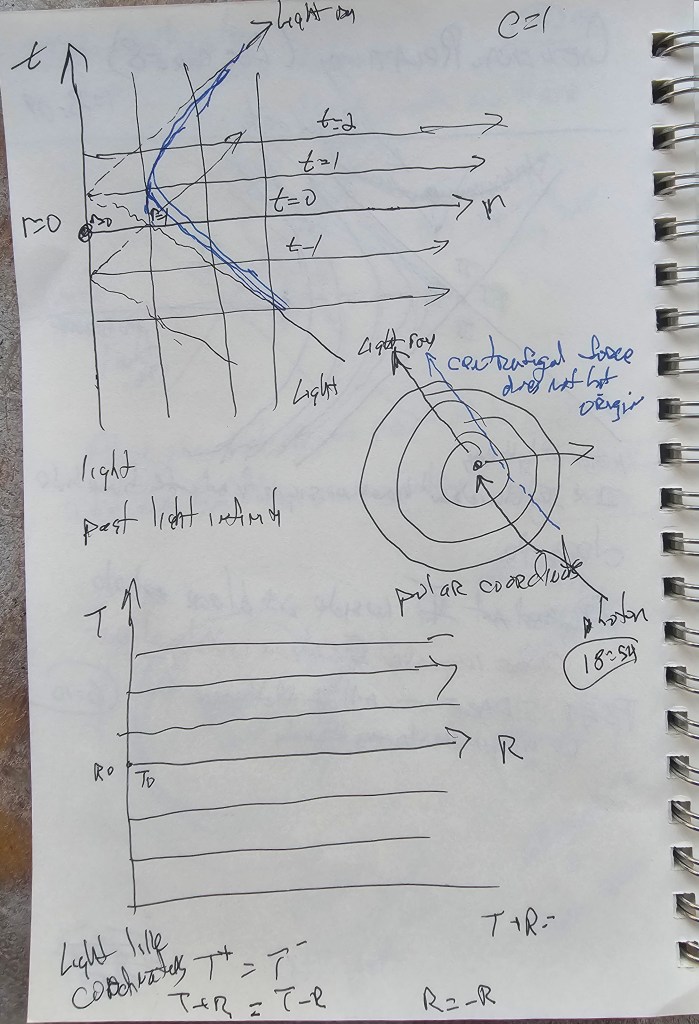 Light ray
C=1
t
t=2
t=1
t=0
r
r=0
r=0
r=1
t-1
Light
Light ray
centrifugal force
does not hit
origin
light
past light infinity
polar coordinate
photon
18:54
T
R
R0
T0
T+R=
Light like
coordinates T+ = T-
T+R = T-R
R=-R